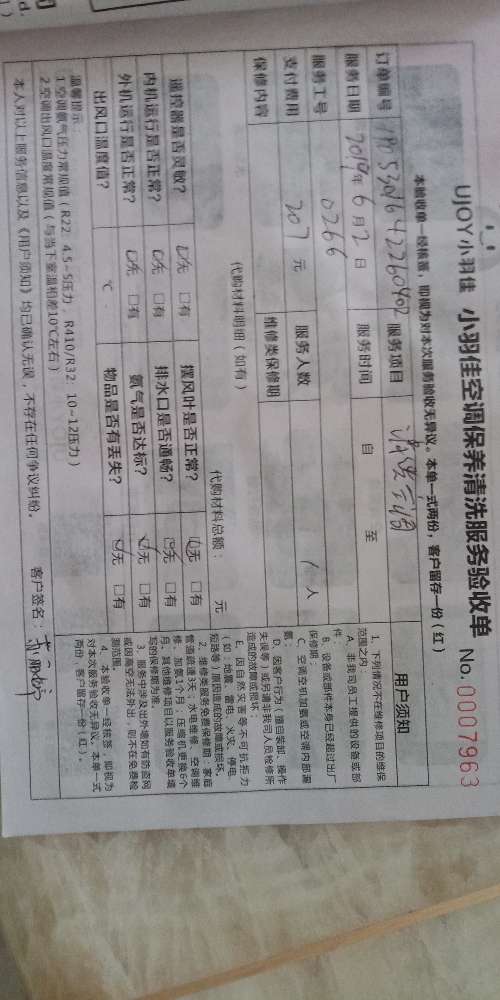 UJOY小羽佳 小羽佳空调保养清洗服务验收单 No.0007963
本验收单一经核签，即视为对本次服务验收无异议。本单一式两份，客户留存一份（红）
订单编号 服务项目
服务日期 2019年6月2日 服务时间 自 至
服务工号 0266 服务人数 1人
支付费用 207 元
保修内容 维修类保修期
代购材料明细（如有）
代购材料总额： 元
遥控器是否灵敏？ ☑无 □有 摆风叶是否正常？ ☑无 □有
内机运行是否正常？ ☑无 □有 排水口是否通畅？ ☑无 □有
外机运行是否正常？ ☑无 □有 氨气是否达标？ ☑无 □有
出风口温度值？ ℃ 物品是否有丢失？ ☑无 □有
温馨提示：
1.空调氨气压力常规值（R22：4.5~5压力，R410/R32：10~12压力）
2.空调出风口温度常规值（与当下室温相差10℃左右）
本人对以上服务信息以及《用户须知》均已确认无误，不存在任何争议纠纷。 客户签名：
用户须知
1、下列情况不在维修项目的维保
范围之内：
A、非我司员工提供的设备或部
件；
B、设备或部件本身已经超过出厂
保修期；
C、空调移机加氨或空调内部漏
氨；
D、因客户行为（擅自装卸、操作
失误等）或另请非我司人员检修所
造成的故障或损坏
E、因自然灾害等不可抗拒力
（如：地震、雷电、火灾、停电、
短路等）原因造成的故障或损坏。
2、维修类服务免费保修期：家庭
管道疏通3天；水电维修、空调维
修、加氨1个月；压缩机更换6个
月；其他维修项目以服务验收单填
写的保修期为准。
3、服务中涉及出外墙如有防盗网
或因高空无法外出，则不在免费检
测范围。
4、本验收单一经核签，即视为
对本次服务验收无异议。本单一式
两份，客户留存一份（红）。